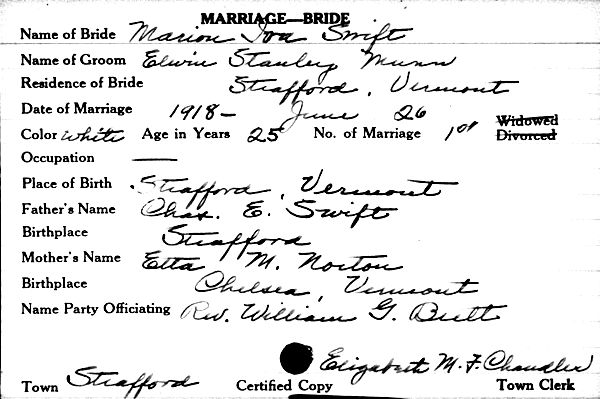 MARRIAGE—BRIDE
Name of Bride Marion Iva Swift
Name of Groom Elwin Stanley Munn
Residence of Bride Strafford, Vermont
Date of Marriage 1918- June 26
Color White Age in Years 25 No. of Marriage 1st Widowed Divorced
Occupation —
Place of Birth Strafford, Vermont
Father's Name Chas. E. Swift
Birthplace Strafford
Mother's Name Etta M. Norton
Birthplace Chelsea, Vermont
Name Party Officiating Rev. William G.
Elizabeth M. F. Chandler
Town Strafford Certified Copy Town Clerk